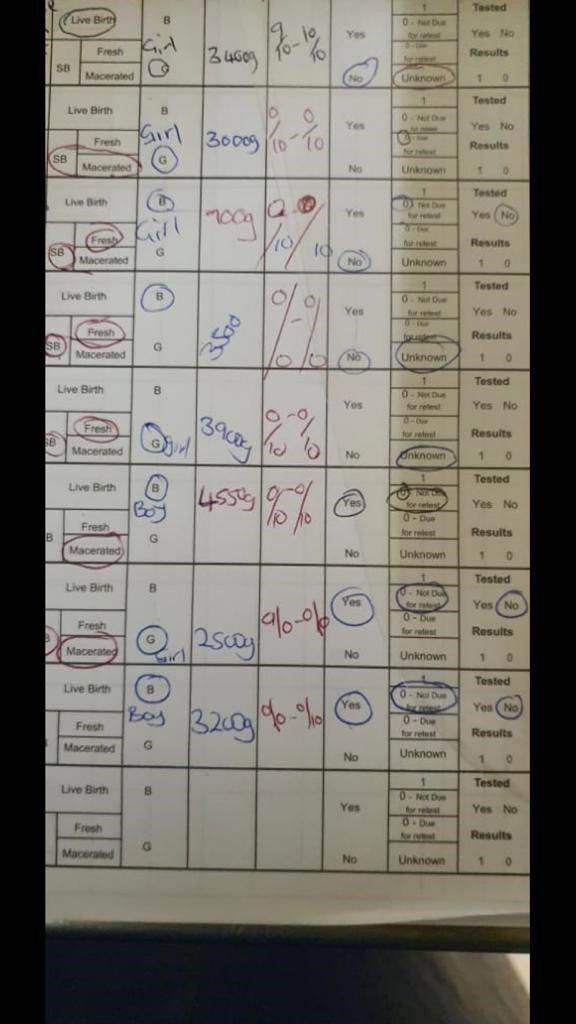 Live Birth B 1 Tested
Girl 3400g 9/10-10/10 Yes 0 - Not Due for retest Yes No
Fresh 0 - Due for retest Results
SB Macerated G No Unknown 1 0
Live Birth B 1 Tested
Girl 3000g 0/10-0/10 Yes 0 - Not Due for retest Yes No
Fresh 0 - Due for retest Results
SB Macerated G No Unknown 1 0
Live Birth B 1 Tested
Girl 700g 0/10 10 Yes 0 - Not Due for retest Yes No
Fresh 0 - Due for retest Results
SB Macerated G No Unknown 1 0
Live Birth B 1 Tested
Yes 0 - Not Due for retest Yes No
Fresh 0 - Due for retest Results
SB Macerated G No Unknown 1 0
Live Birth B 1 Tested
3900g 0/10-0/10 Yes 0 - Not Due for retest Yes No
Fresh 0 - Due for retest Results
SB Macerated G Girl No Unknown 1 0
Live Birth B 1 Tested
Boy 4550g 0/10-0/10 Yes 0 - Not Due for retest Yes No
Fresh 0 - Due for retest Results
B Macerated G No Unknown 1 0
Live Birth B 1 Tested
Yes 0 - Not Due for retest Yes No
Fresh 0 - Due for retest Results
B Macerated G Girl 2500g 0/10-0/10 No Unknown 1 0
Live Birth B 1 Tested
Boy 3200g 0/10-0/10 Yes 0 - Not Due for retest Yes No
Fresh 0 - Due for retest Results
Macerated G No Unknown 1 0
Live Birth B 1 Tested
Yes 0 - Not Due for retest Yes No
Fresh 0 - Due for retest Results
Macerated G No Unknown 1 0